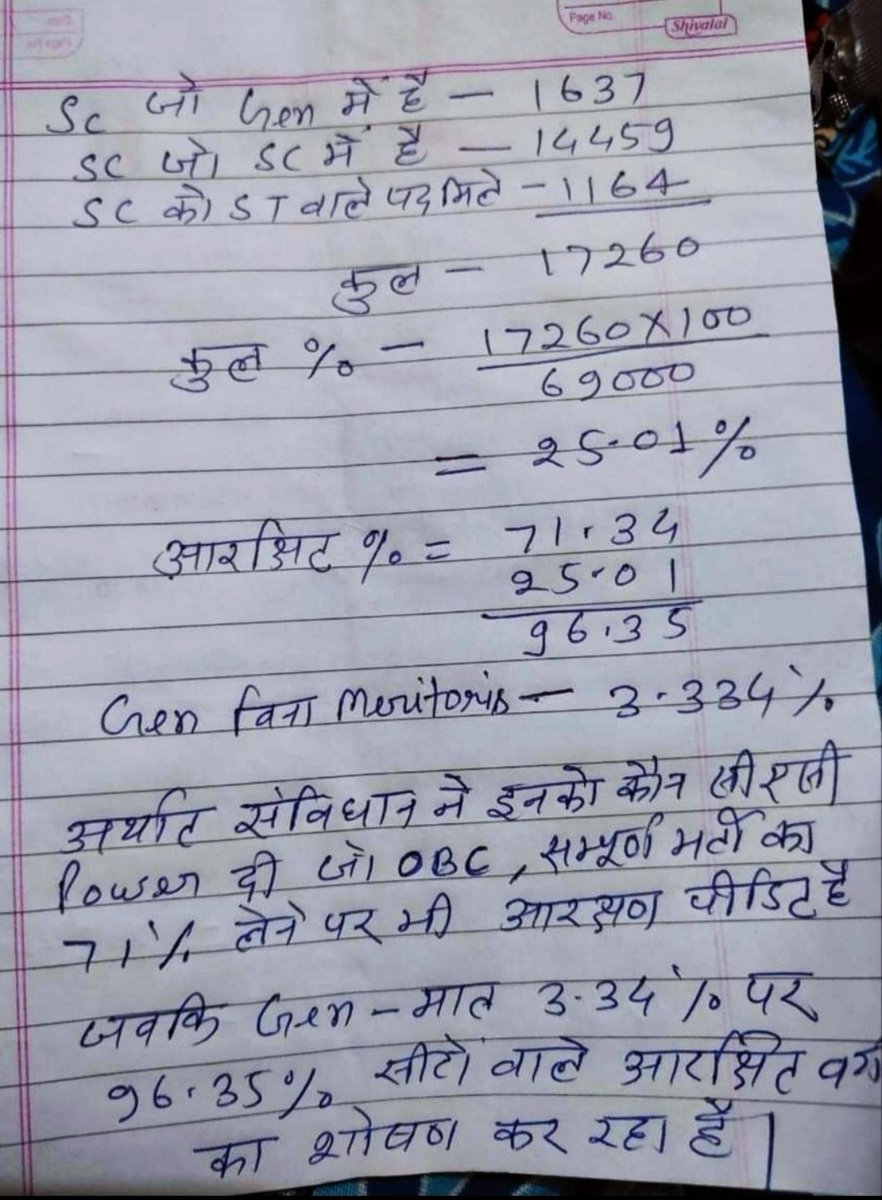 Page No.
Shivalal
SC जो Gen में है — 1637
SC जो SC में है — 14459
SC को ST वाले पद मिले - 1164
कुल — 17260
कुल % — 17260X100
69000
= 25.01%
आरक्षित % = 71.34
25.01
96.35
Gen बिना Meritoris — 3.334%
अर्थात संविधान ने इनको कौन सी एसी
Power दी जो OBC, सम्पूर्ण भर्ती का
71% लेने पर भी आरक्षण पीडित है
जबकि Gen - मात्र 3.34% पर
96.35% सीटो वाले आरक्षित वर्ग
का शोषण कर रहा है।